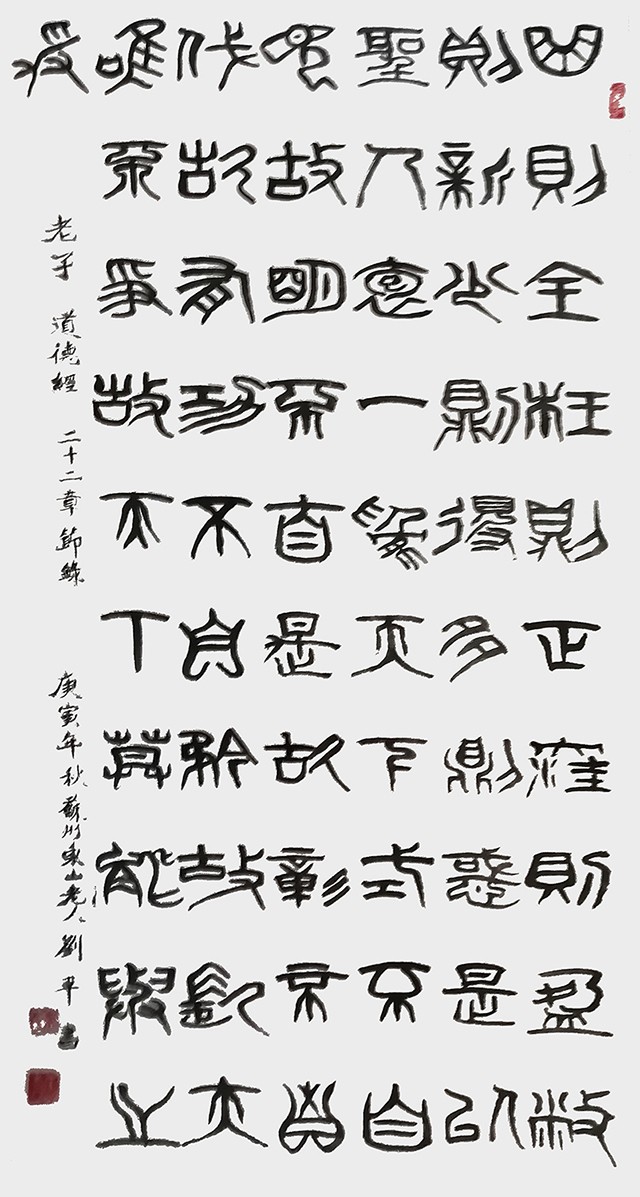 曲則全枉則正窪則盈敝
則新少則得多則惑是以
聖人袌一為天下式不自
見故明不自是故彰不自
伐故有功不自矜故長夫
唯不爭故天下莫能與之
爭
老子 道德經 二十二章節錄 庚寅年秋蘇州東山老人劉平書